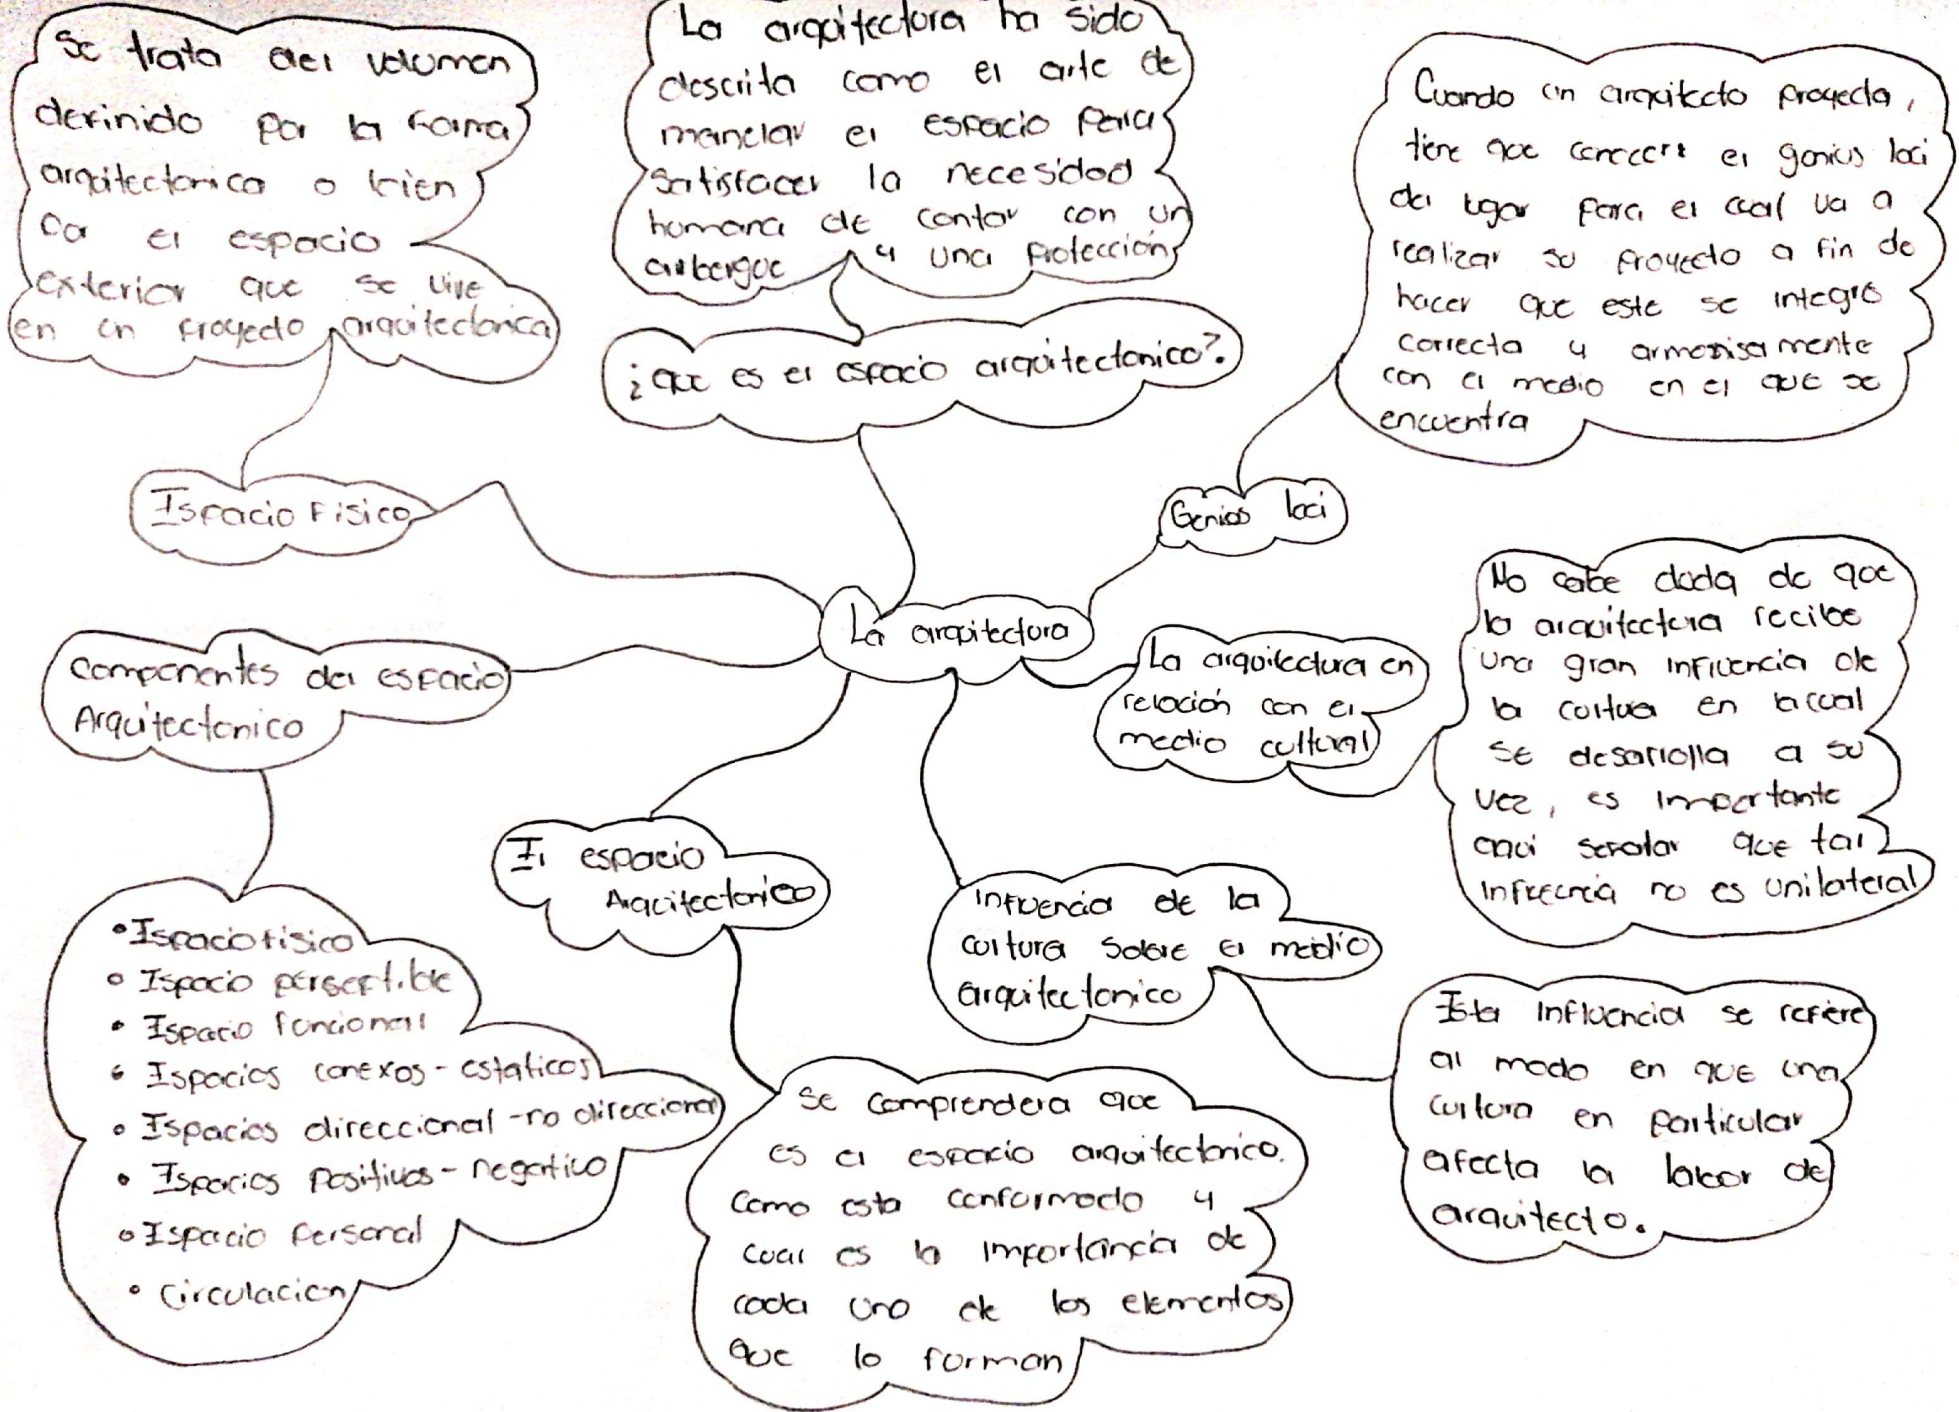 Se trata del volumen
definido por la forma
arquitectonica o bien
por el espacio
exterior que se vive
en un proyecto arquitectonica
La arquitectura ha sido
descrita como el arte de
manelar el espacio para
satisfacer la necesidad
humana de contar con un
albergue y una protección
Cuando un arquitecto proyecta,
tiene que conocer el genius loci
del lugar para el cual va a
realizar su proyecto a fin de
hacer que este se integre
correcta y armonisamente
con el medio en el que se
encuentra
¿que es el espacio arquitectonico?.
Espacio Fisico
Genios loci
La arquitectura
Componentes del espacio
Arquitectonico
La arquitectura en
relación con el
medio cultural
No cabe duda de que
la arquitectura recibe
una gran influencia de
la cultura en la cual
se desarrolla a su
vez, es importante
aqui señalar que tal
influencia no es unilateral
El espacio
Arquitectonico
Influencia de la
cultura sobre el medio
arquitectonico
• Espacio fisico
• Espacio perseptible
• Espacio funcional
• Espacios conexos - estaticos
• Espacios direccional - no direccional
• Espacios positivos - negativo
• Espacio personal
• Circulacion
Se comprendera que
es el espacio arquitectonico.
Como esta conformado y
cual es la importancia de
cada uno de los elementos
que lo forman
Esta influencia se refiere
al modo en que una
cultura en particular
afecta la labor de
arquitecto.